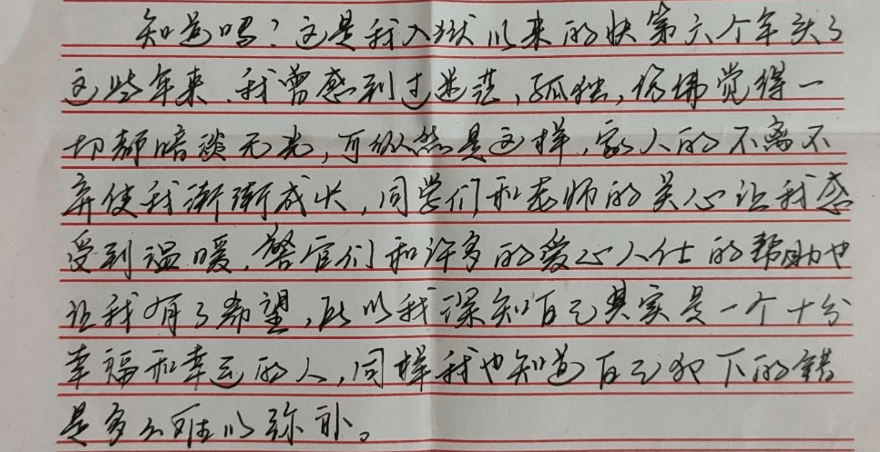 知道吗？这是我入狱以来的快第六个年头了
这些年来，我曾感到过迷茫，孤独，仿佛觉得一
切都暗淡无光，可纵然是这样，家人的不离不
弃使我渐渐成长，同学们和老师的关心让我感
受到温暖，警官们和许多的爱心人仕的帮助也
让我有了希望，所以我深知自己其实是一个十分
幸福和幸运的人，同样我也知道自己犯下的错
是多么难以弥补。